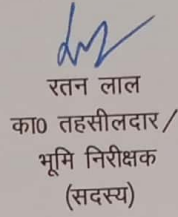 रतन लाल
का0 तहसीलदार/
भूमि निरीक्षक
(सदस्य)